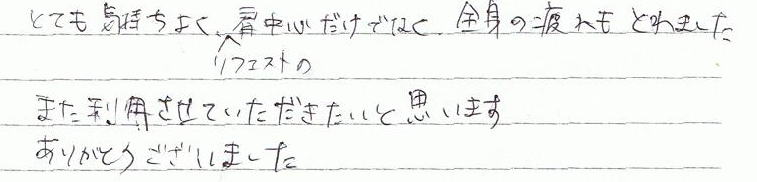 とても気持ちよく、肩中心だけでなく、全身の疲れもとれました
リクエストの
また利用させていただきたいと思います
ありがとうございました